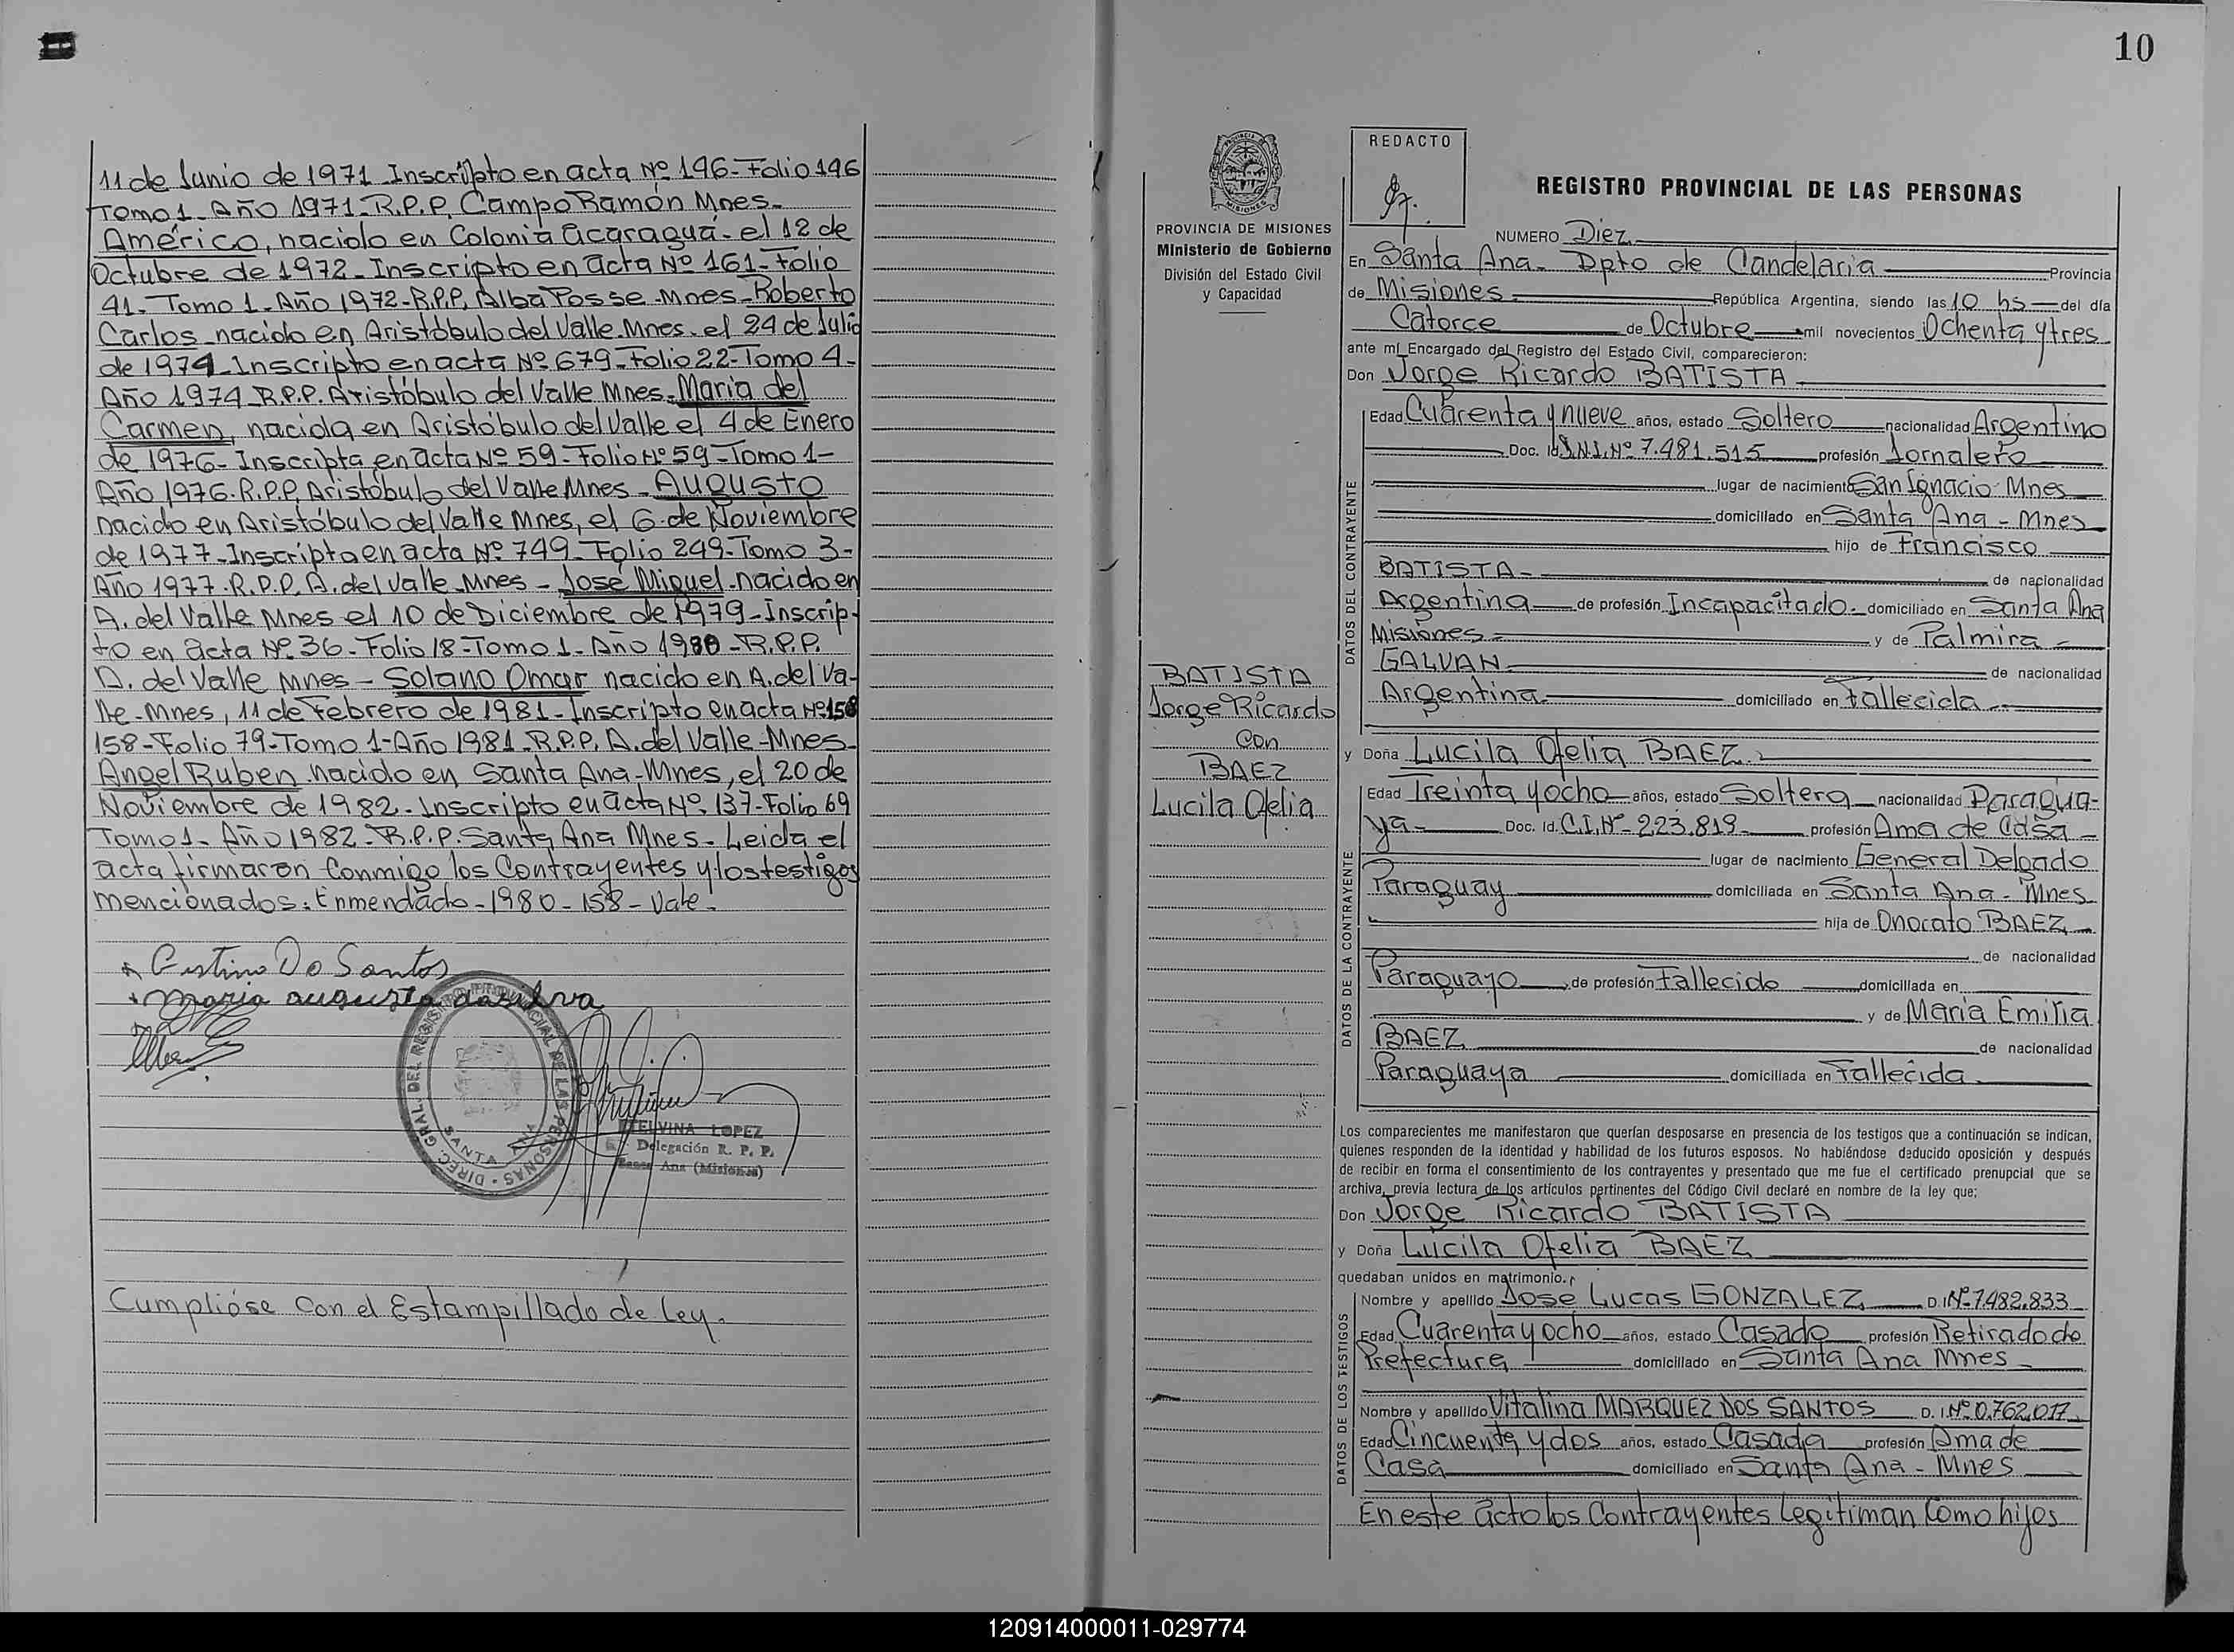 11 de Junio de 1971 Inscripto en acta Nº 196-Folio 196
Tomo 1-Año 1971-R.P.P. Campo Ramón Mnes-
Américo, nacido en Colonia Acaraguá- el 12 de
Octubre de 1972-Inscripto en acta Nº 161-Folio
41-Tomo 1-Año 1972-R.P.P. Alba Posse-Mnes-Roberto
Carlos nacido en Aristóbulo del Valle Mnes. el 24 de Julio
de 1974-Inscripto en acta Nº 679-Folio 22-Tomo 4-
Año 1974 R.P.P. Aristóbulo del Valle Mnes-Maria del
Carmen, nacida en Aristóbulo del Valle el 4 de Enero
de 1976-Inscripta en acta Nº 59-Folio Nº 59-Tomo 1-
Año 1976.R.P.P. Aristóbulo del Valle Mnes-Augusto
nacido en Aristóbulo del Valle Mnes, el 6 de Noviembre
de 1977-Inscripta en acta Nº 749-Folio 249-Tomo 3-
Año 1977.R.P.P. A. del Valle Mnes-José Miguel-nacido en
A. del Valle Mnes el 10 de Diciembre de 1979-Inscrip-
to en acta Nº 36-Folio 18-Tomo 1-Año 1980-R.P.P.
A. del Valle Mnes-Solano Omar nacido en A. del Va-
lle-Mnes, 11 de Febrero de 1981-Inscripto en acta Nº 158
158-Folio 79-Tomo 1-Año 1981 R.P.P. A. del Valle-Mnes-
Angel Ruben nacido en Santa Ana-Mnes, el 20 de
Noviembre de 1982-Inscripto en acta Nº 137-Folio 69
Tomo 1-Año 1982-R.P.P. Santa Ana Mnes-Leida el
acta firmaron conmigo los Contrayentes y los testigos
mencionados: Enmendado-1980-158-Vale.
Do Santos
Maria augusta da silva
DIREC. GRAL. DEL REGISTRO PROVINCIAL DE LAS PERSONAS
SANTA ANA
ETELVINA LOPEZ
Delegación R. P. P.
Santa Ana (Misiones)
Cumplióse con el Estampillado de Ley.
10
PROVINCIA DE MISIONES
Ministerio de Gobierno
División del Estado Civil
y Capacidad
BATISTA
Jorge Ricardo
Con
BAEZ
Lucila Ofelia
REDACTO
REGISTRO PROVINCIAL DE LAS PERSONAS
NUMERO Diez
En Santa Ana- Dpto de Candelaria Provincia
de Misiones República Argentina, siendo las 10 hs del día
Catorce de Octubre mil novecientos Ochenta y tres
ante mí Encargado del Registro del Estado Civil, comparecieron:
Don Jorge Ricardo BATISTA
DATOS DEL CONTRAYENTE
Edad Cuarenta y nueve años, estado Soltero nacionalidad Argentino
Doc. Id. D.N.I. Nº 7.481.515 profesión Jornalero
lugar de nacimiento San Ignacio Mnes
domiciliado en Santa Ana-Mnes
hijo de Francisco
BATISTA- de nacionalidad
Argentina de profesión Incapacitado domiciliado en Santa Ana
Misiones- y de Palmira
GALVAN de nacionalidad
Argentina domiciliado en Fallecida
y Doña Lucila Ofelia BAEZ
DATOS DE LA CONTRAYENTE
Edad Treinta y ocho años, estado Soltera nacionalidad Paragua-
ya- Doc. Id. C.I. Nº-223.819 profesión Ama de Casa
lugar de nacimiento General Delgado
Paraguay domiciliada en Santa Ana-Mnes
hija de Onorato BAEZ
de nacionalidad
Paraguayo de profesión Fallecido domiciliada en
y de Maria Emilia
BAEZ de nacionalidad
Paraguaya domiciliada en Fallecida
Los comparecientes me manifestaron que querían desposarse en presencia de los testigos que a continuación se indican,
quienes responden de la identidad y habilidad de los futuros esposos. No habiéndose deducido oposición y después
de recibir en forma el consentimiento de los contrayentes y presentado que me fue el certificado prenupcial que se
archiva, previa lectura de los artículos pertinentes del Código Civil declaré en nombre de la ley que:
Don Jorge Ricardo BATISTA
y Doña Lucila Ofelia BAEZ
quedaban unidos en matrimonio.
DATOS DE LOS TESTIGOS
Nombre y apellido Jose Lucas GONZALEZ D.I. Nº 7.482.833
Edad Cuarenta y ocho años, estado Casado profesión Retirado de
Prefectura domiciliado en Santa Ana Mnes
Nombre y apellido Vitalina MARQUEZ DOS SANTOS D. I. Nº 0.762.017
Edad Cincuenta y dos años, estado Casada profesión Ama de
Casa domiciliado en Santa Ana-Mnes
En este acto los Contrayentes Legitiman Como hijos
120914000011-029774